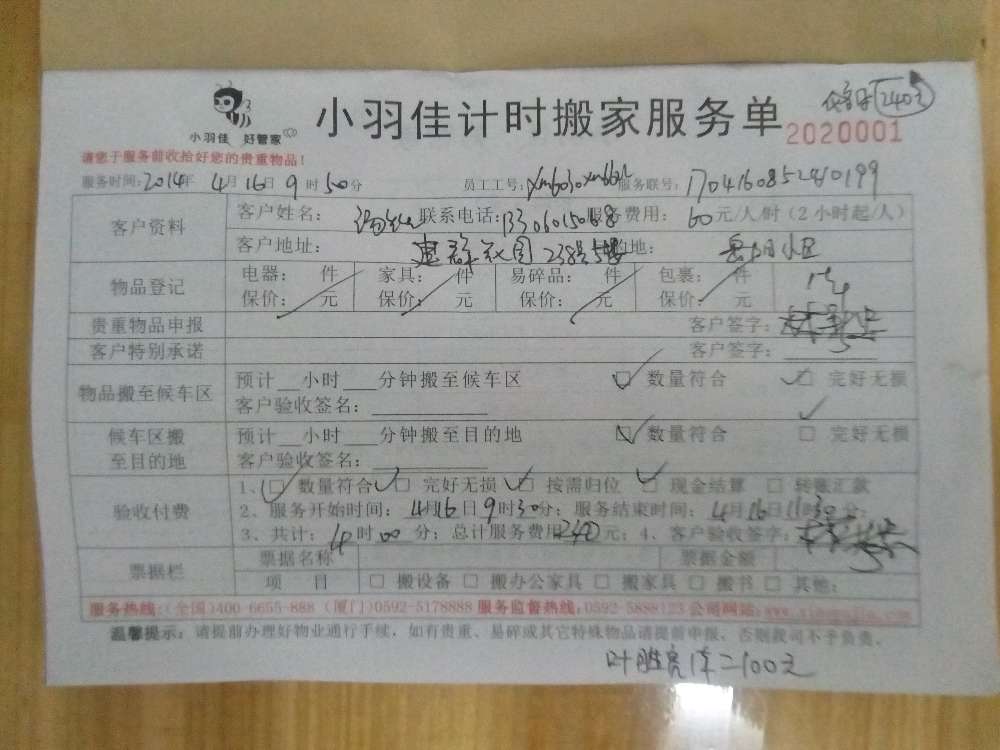 小羽佳 好管家
小羽佳计时搬家服务单
240元
2020001
请您于服务前收拾好您的贵重物品!
服务时间:2014年 4月16日9时50分 员工工号: 服务联号:
客户资料 客户姓名: 联系电话: 服务费用: 60元/人/时(2小时起/人)
客户地址: 238号 目的地: 岳阳小区
物品登记 电器: 件 家具: 件 易碎品: 件 包裹: 件
保价: 元 保价: 元 保价: 元 保价: 元
贵重物品申报 客户签字:
客户特别承诺 客户签字:
物品搬至候车区 预计__小时___分钟搬至候车区 ☑ 数量符合 ☑ 完好无损
客户验收签名:
候车区搬至目的地 预计__小时___分钟搬至目的地 ☑ 数量符合 □ 完好无损
客户验收签名:
验收付费 1、☑ 数量符合 ☑ 完好无损 ☑ 按需归位 ☑ 现金结算 □ 转账汇款
2、服务开始时间:4月16日9时30分;服务结束时间:4月16日11时30分;
3、共计:4时00分;总计服务费用240元;4、客户验收签字:
票据栏 票据名称 票据金额
项 目 □ 搬设备 □ 搬办公家具 □ 搬家具 □ 搬书 □ 其他:
服务热线:(全国)400-6655-888 (厦门)0592-5178888 服务监督热线:0592-5888123 公司网站:
温馨提示:请提前办理好物业通行手续,如有贵重、易碎或其它特殊物品请提前申报,否则我司不予负责。
叶胜亮 二100元